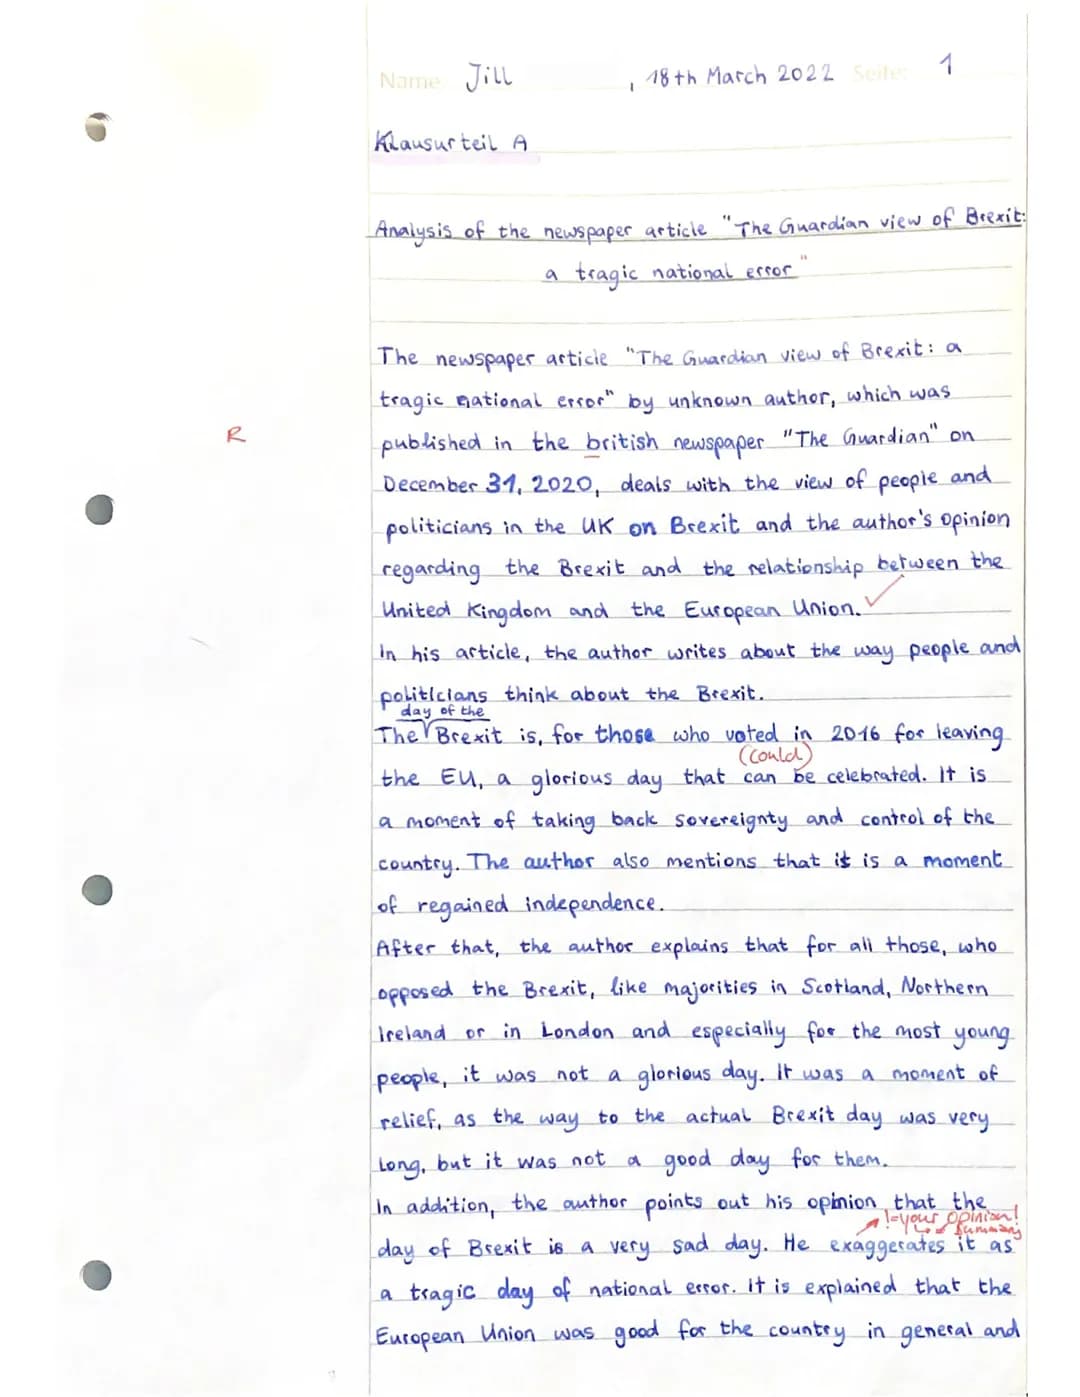 Name Jill , 18th March 2022 Seite: 1
Klausurteil A
Analysis of the newspaper article "The Guardian view of Brexit:
a tragic national error"
The newspaper article "The Guardian view of Brexit: a
tragic national error" by unknown author, which was
R
published in the british newspaper "The Guardian" on
December 31, 2020, deals with the view of people and
politicians in the UK on Brexit and the author's opinion
regarding the Brexit and the relationship between the
United Kingdom and the European Union.
In his article, the author writes about the way people and
politicians think about the Brexit.
day of the
The Brexit is, for those who voted in 2016 for leaving
(could)
the EU, a glorious day that can be celebrated. It is
a moment of taking back sovereignty and control of the
country. The author also mentions that it is a moment
of regained independence.
After that, the author explains that for all those, who
opposed the Brexit, like majorities in Scotland, Northern
Ireland or in London and especially for the most young
people, it was not a glorious day. It was a moment of
relief, as the way to the actual Brexit day was very
long, but it was not a good day for them.
In addition, the author points out his opinion that the
!=your opinion!
summary
day of Brexit is a very sad day. He exaggerates it as
a tragic day of national error. It is explained that the
European Union was good for the country in general and